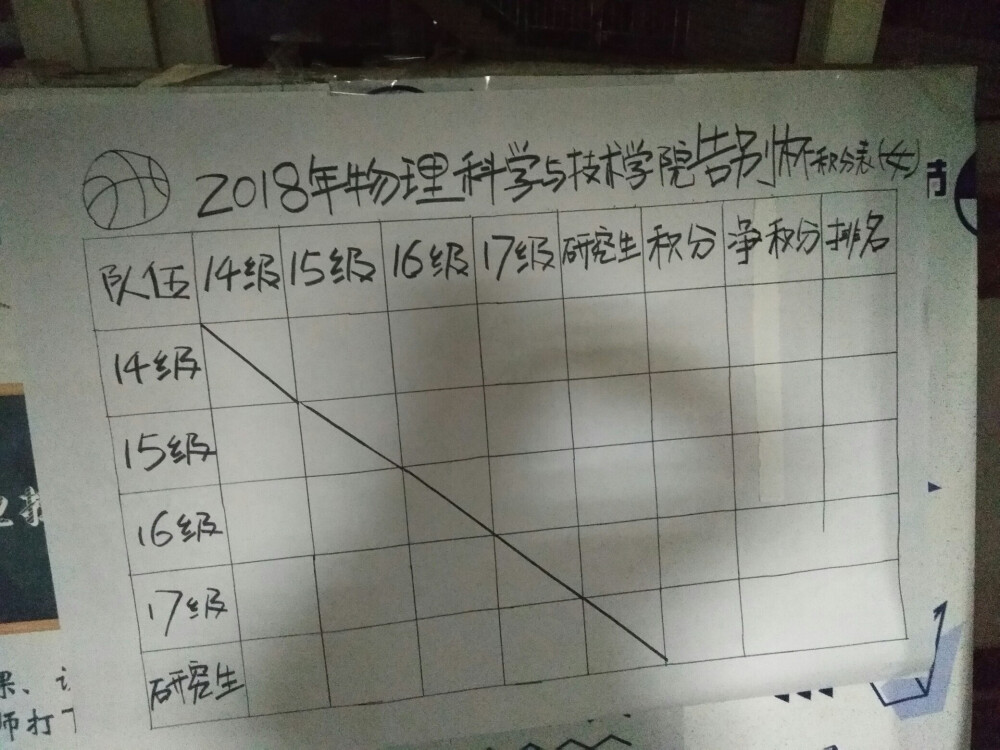 2018年物理科学与技术学院告别杯积分表(女)
队伍 14级 15级 16级 17级 研究生 积分 净积分 排名
14级
15级
16级
17级
研究生
果、
师打